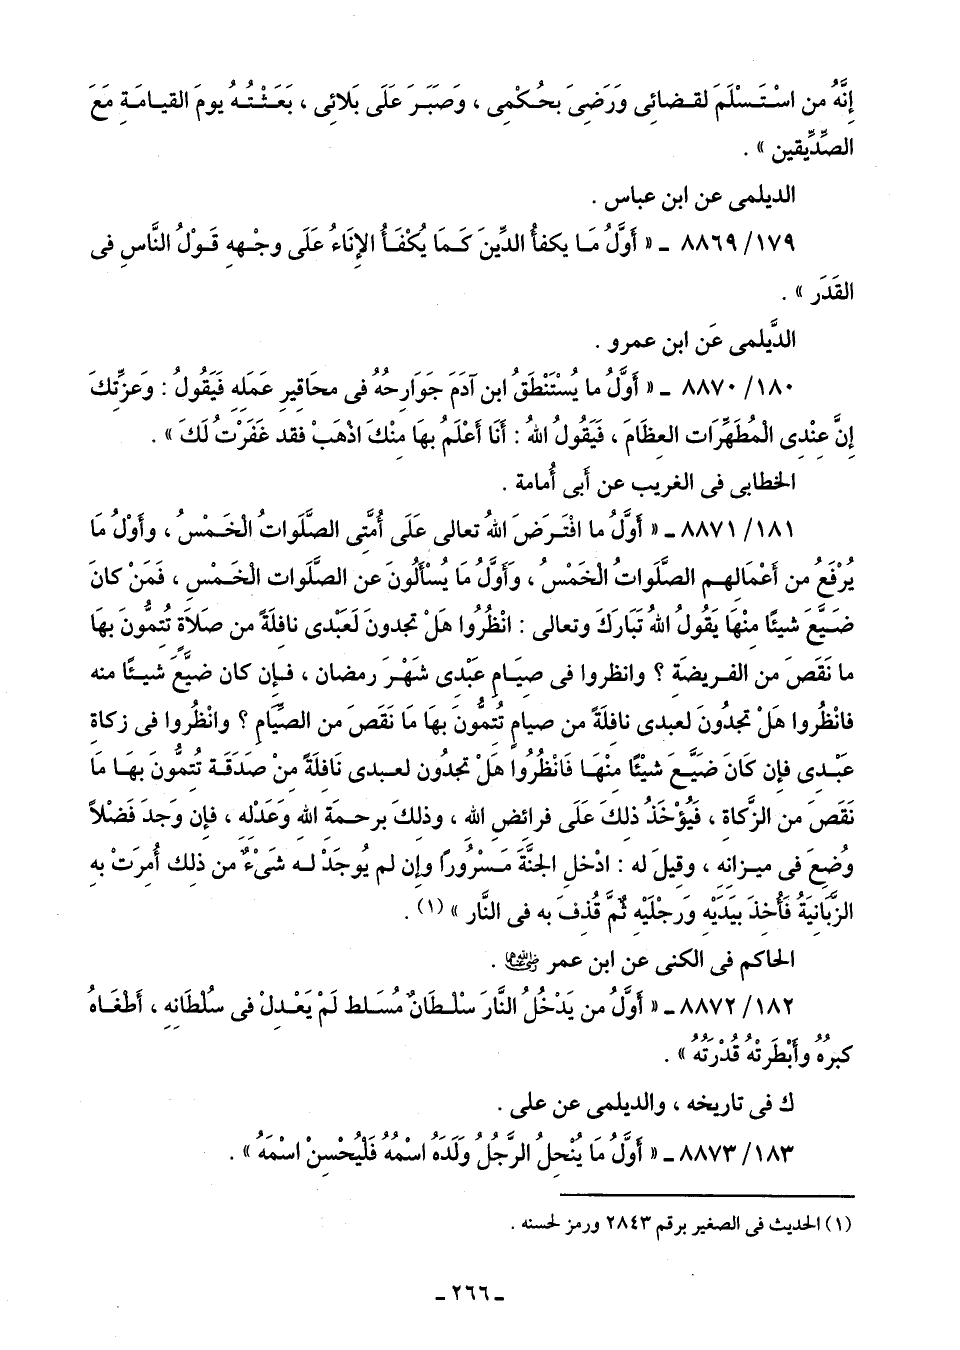 إنَّهُ من اسْتَسْلَمَ لقضائى ورَضِىَ بحُكْمِى ، وصَبَرَ عَلَى بَلائِى ، بَعَثْتُهُ يومَ القيامَةِ مَعَ
الصِّدِّيقين » .
الديلمى عن ابن عباس .
١٧٩/ ٨٨٦٩ ـ « أَوَّلُ مَا يكفأُ الدِّينَ كَمَا يُكْفَأُ الإِنَاءُ عَلَى وجْهِهِ قَوْلُ النَّاسِ فى
القَدَرِ » .
الدَّيلمى عَن ابن عمرو .
١٨٠/ ٨٨٧٠ ـ « أَوَّلُ ما يُسْتَنْطَقُ ابن آدَمَ جَوَارِحُهُ فى محَاقِيرِ عَمَلِهِ فَيَقُولُ : وَعِزَّتِكَ
إنَّ عِنْدِى الْمُطَهِّرَاتِ العِظَامَ ، فَيَقُولُ اللهُ : أَنَا أَعْلَمُ بهَا مِنْكَ اذْهَبْ فقد غَفَرْتُ لَكَ » .
الخطابى فى الغريب عن أَبى أُمامة .
١٨١/ ٨٨٧١ ـ « أَوَّلُ ما افْتَرَضَ اللهُ تعالى عَلَى أُمَّتِى الصَّلَوَاتُ الْخَمْسُ ، وأَوْلُ مَا
يُرْفَعُ من أَعْمَالِهِم الصَّلَواتُ الْخَمْسُ ، وأَوَّلُ مَا يُسْأَلُونَ عن الصَّلَواتِ الْخَمْسِ ، فَمَنْ كانَ
ضَيَّعَ شيئًا مِنْهَا يَقُولُ اللهُ تَبَارَكَ وتعالى : انْظُرُوا هَلْ تجدون لَعَبْدِى نافِلَةً من صلاَةٍ تُتِمُّونَ بِهَا
ما نَقَصَ من الفريضَةِ ؟ وانظروا فى صِيَامِ عَبْدِى شَهْرَ رمضان ، فإن كان ضيَّعَ شيئًا منه
فانْظُروا هَلْ تجدُونَ لعبدى نافلَةً من صيامٍ تُتمُّونَ بهَا مَا نَقَصَ من الصِّيَامِ ؟ وانْظُروا فى زكاةِ
عبْدِى فإن كَانَ ضَيَّعَ شيْئًا مِنْهَا فَانْظُرُوا هَلْ تجدُون لعبدى نَافِلَةً مِنْ صدَقَةٍ تُتِمُّونَ بهَا مَا
نَقَصَ من الزَّكاةِ ، فَيُؤْخَذُ ذلكَ عَلَى فرائضِ الله ، وذلكَ برحمةِ اللهِ وَعَدْلِهِ ، فإن وجَدَ فَضْلاً
وُضِعَ فى ميزانِهِ ، وقيلَ له : ادْخل الجنَّةَ مَسْرُورًا وإن لم يُوجَدْ لَهُ شَىْءٌ من ذلك أُمِرَتْ بِهِ
الزَّبَانِيَةُ فَأُخِذَ بِيَدَيْهِ وَرِجْلَيْهِ ثُمَّ قُذِفَ بِهِ فى النَّارِ » (١) .
الحاكم فى الكنى عن ابن عمر رضي الله عنهما .
١٨٢/ ٨٨٧٢ ـ « أَوَّلُ من يَدْخُلُ النَّارَ سُلْطَانٌ مُسَلط لَمْ يَعْدِلْ فى سُلْطَانِهِ ، أَطْغَاهُ
كبرُهُ وأَبْطَرتْهُ قُدْرَتُهُ » .
ك فى تاريخه ، والديلمى عن على .
١٨٣/ ٨٨٧٣ ـ « أَوَّلُ مَا يُنْحِلُ الرَّجُلُ ولَدَهُ اسْمُهُ فَلْيُحْسِنْ اسْمَهُ » .
(١) الحديث فى الصغير برقم ٢٨٤٣ ورمز لحسنه .
ـ ٢٦٦ ـ